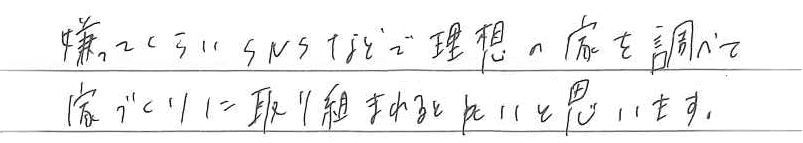 嫌ってくらいSNSなどで理想の家を調べて
家づくりに取り組まれると良いと思います。